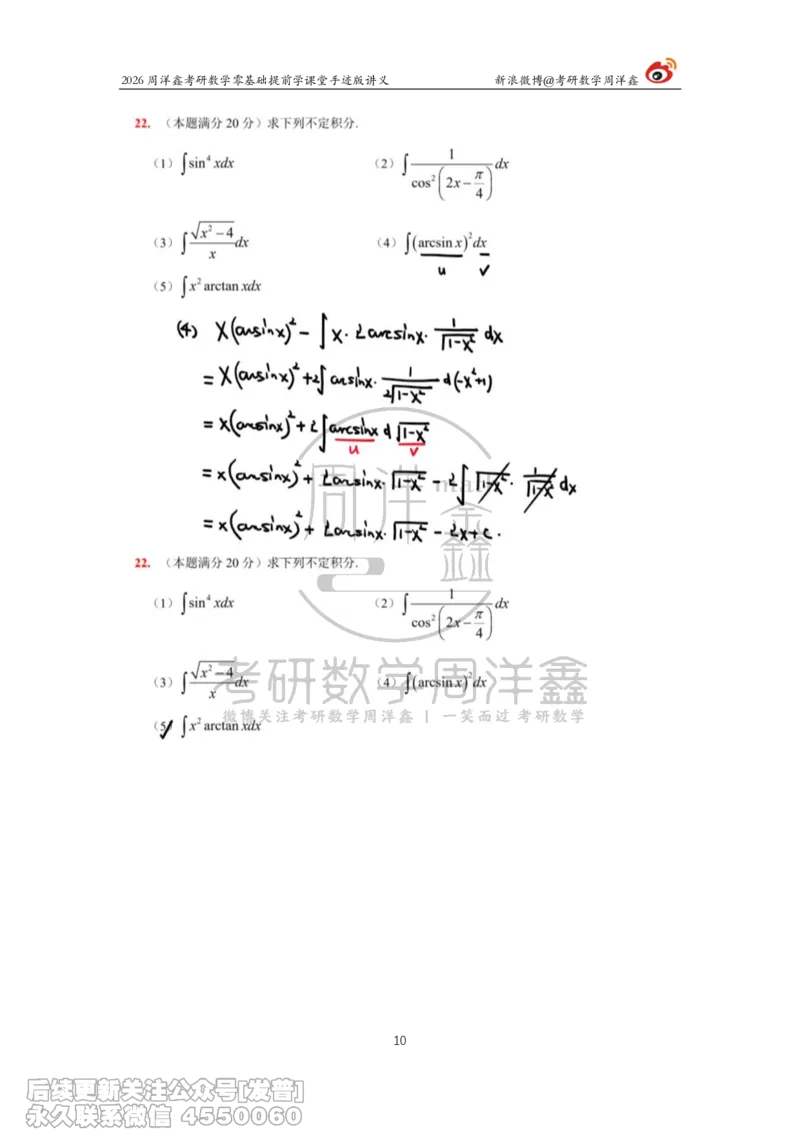 2026 周洋鑫考研数学零基础提前学课堂手迹版讲义 新浪微博@考研数学周洋鑫
22. （本题满分 20 分）求下列不定积分.
（1）∫sin⁴ xdx （2）∫ 1/cos²(2x − π/4) dx
（3）∫ √(x² − 4)/x dx （4）∫(arcsin x)² dx
u v
（5）∫x² arctan xdx
(4) x(arcsinx)² − ∫ x · 2arcsinx · 1/√(1−x²) dx
= x(arcsinx)² + 2∫ arcsinx · 1/(2√(1−x²)) d(−x²+1)
= x(arcsinx)² + 2∫ arcsinx d √(1−x²)
u v
= x(arcsinx)² + 2arcsinx · √(1−x²) − 2∫ √(1−x²) · 1/√(1−x²) dx
= x(arcsinx)² + 2arcsinx · √(1−x²) − 2x + c .
22. （本题满分 20 分）求下列不定积分.
（1）∫sin⁴ xdx （2）∫ 1/cos²(2x − π/4) dx
（3）∫ √(x² − 4)/x dx （4）∫(arcsin x)² dx
（5）∫x² arctan xdx
周洋鑫
考研数学周洋鑫
微博关注考研数学周洋鑫 | 一笑而过 考研数学
10
后续更新关注公众号[发普]
永久联系微信 4550060